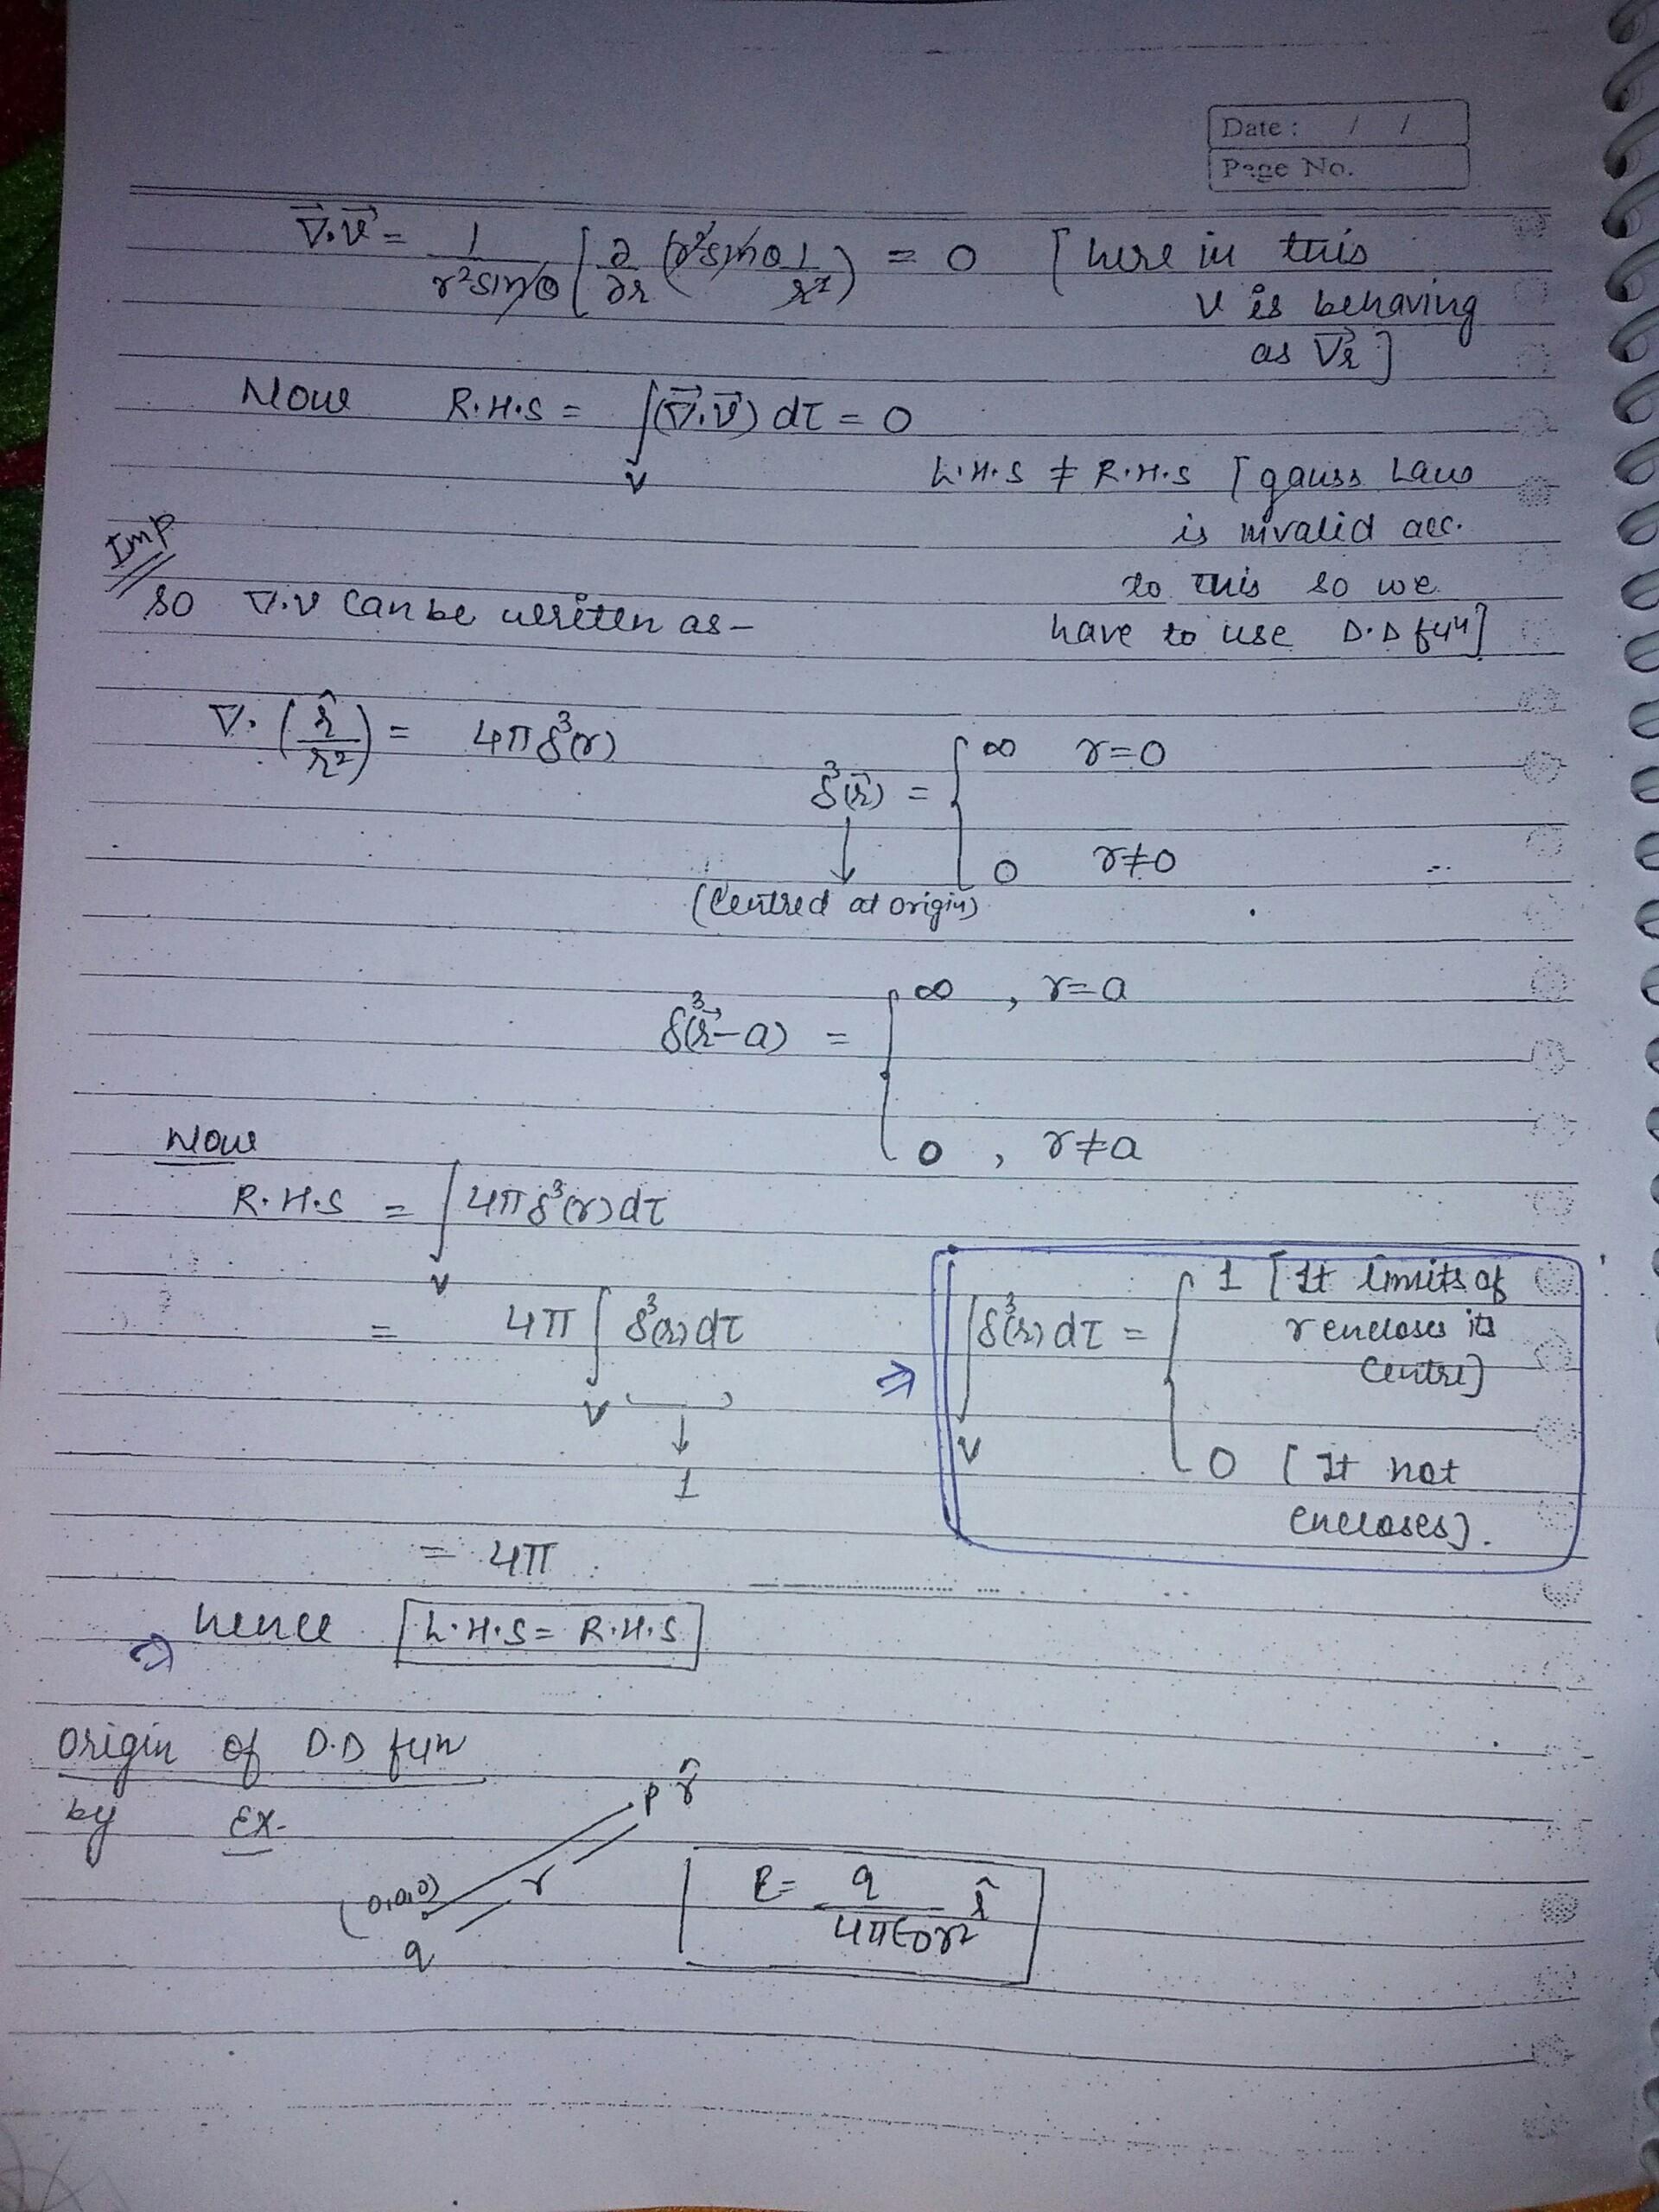 Date : / /
Page No.
∇⃗.v⃗ = 1/(r²sinθ) [∂/∂r (r²sinθ 1/r²) = 0 [here in this
v is behaving
as V⃗r]
Now R.H.S = ∫v (∇⃗.v⃗) dτ = 0
L.H.S ≠ R.H.S [gauss Law
is invalid acc.
Imp
to this so we
so ∇.v can be written as-
have to use D.D fun]
∇. (r̂/r²) = 4πδ³(r)
δ³(r⃗) = { ∞ r=0
0 r≠0
(Centred at origin)
δ³(r⃗-a) = { ∞ , r=a
0 , r≠a
Now
R.H.S = ∫v 4πδ³(r)dτ
= 4π ∫v δ³(r)dτ
↓
1
⇒ ∫v δ³(r)dτ = { 1 [It limits of
r encloses its
Centre]
0 [It not
encloses].
= 4π
⇒ hence L.H.S = R.H.S
Origin of D.D fun
by Ex-
P r̂
r
(0,0,0)
q
E = q/(4π∈0r²) r̂